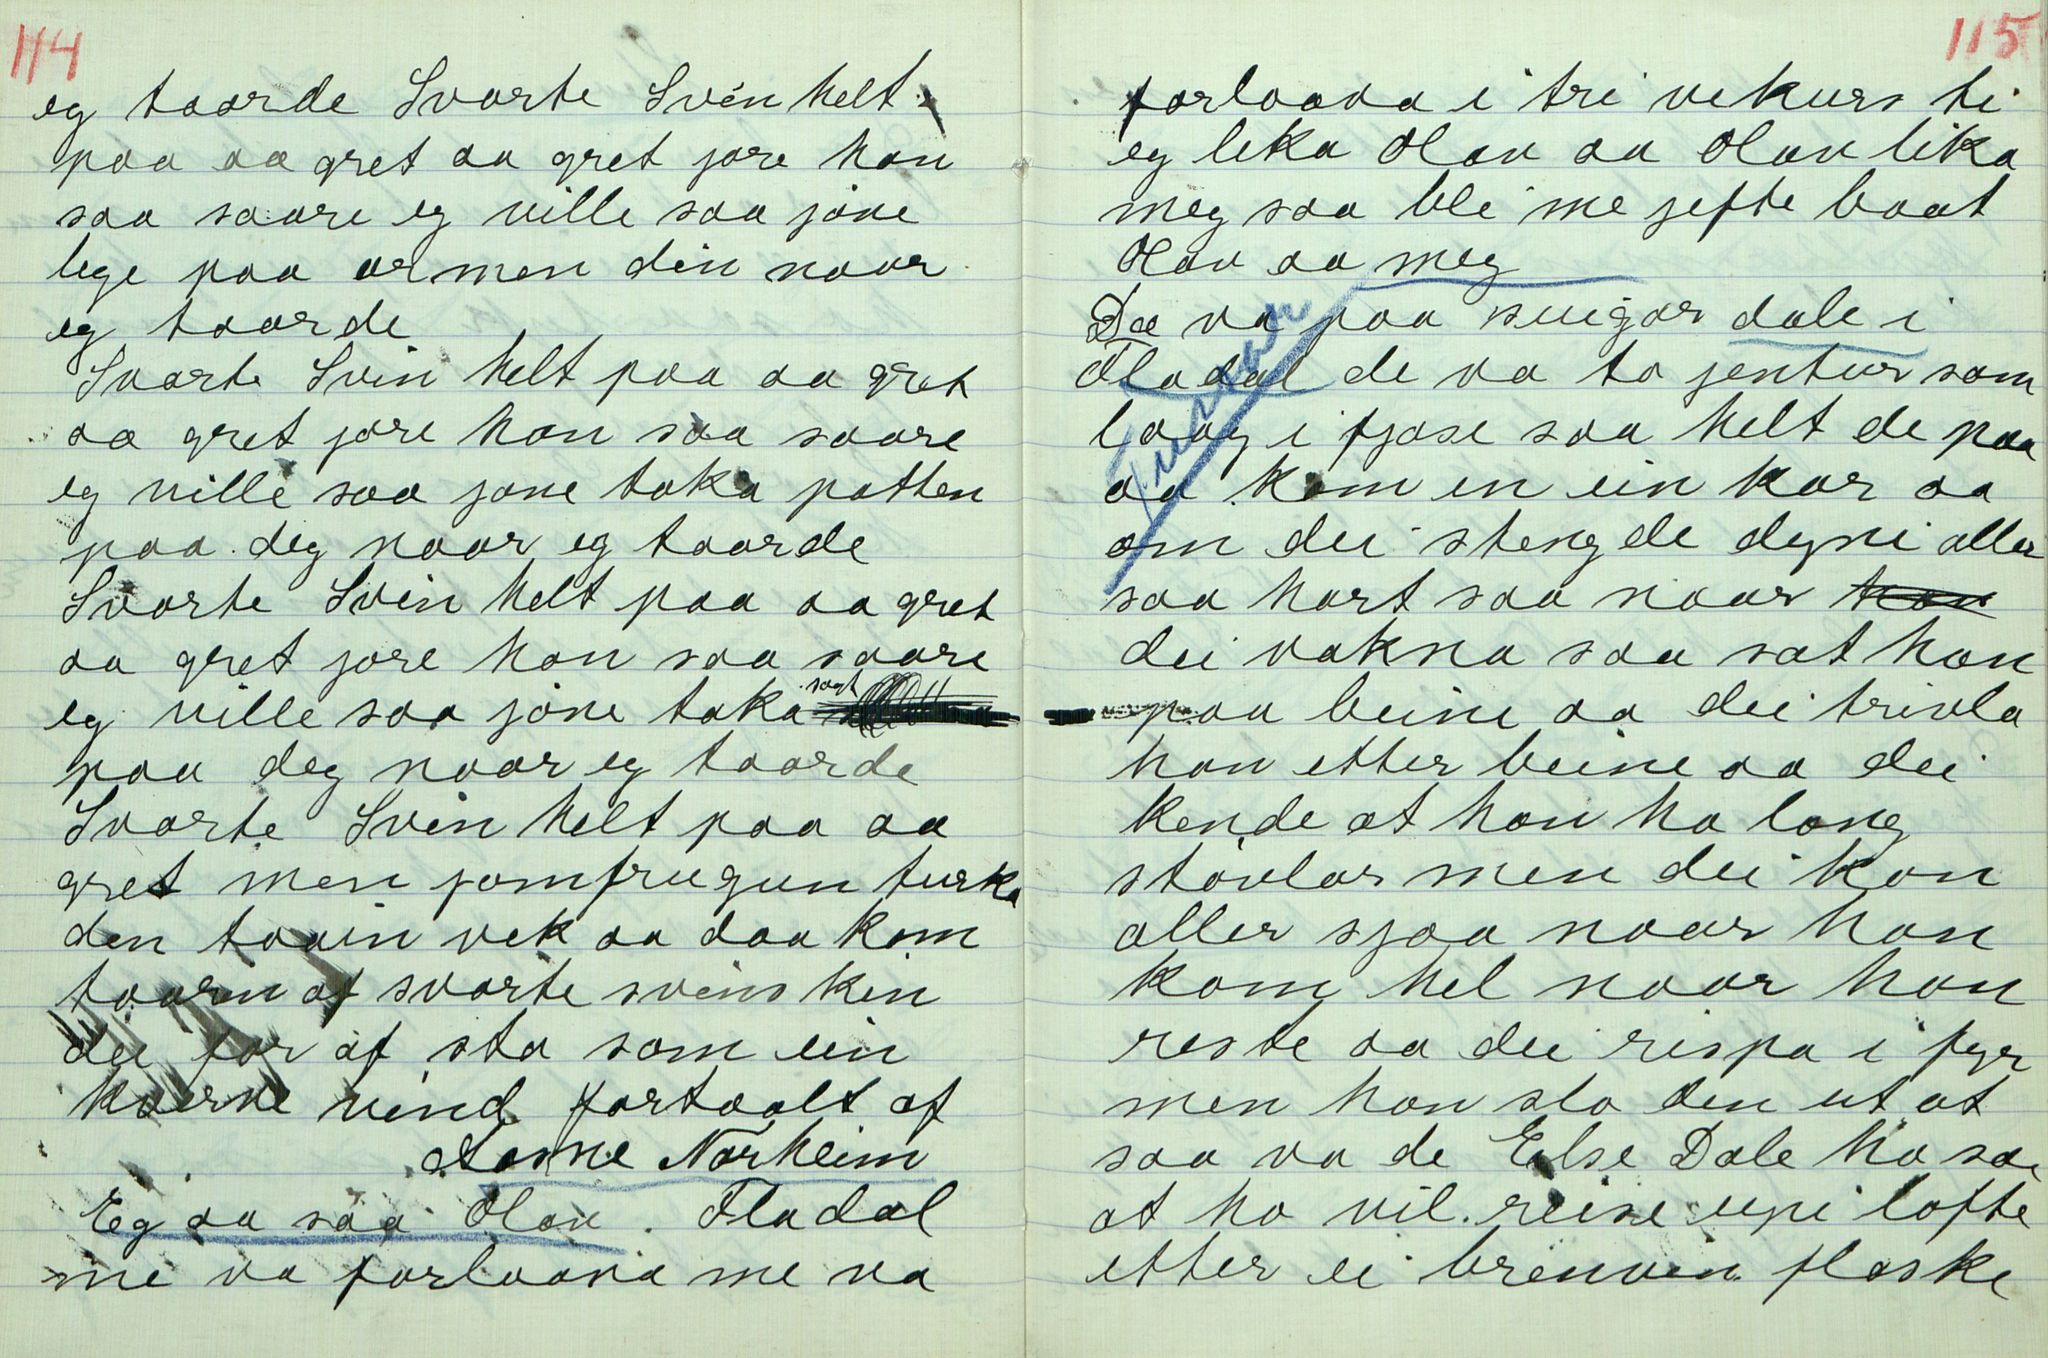 114
eg taarde Svarte Svein helt
paa aa gret aa gret jore han
saa saare eg ville saa jöne
lege paa armen din naar
eg taarde
Svarte Svin helt paa aa gret
aa gret jore han saa saare
eg ville saa jöne taka patten
paa deg naar eg taarde
Svarte Svein helt paa aa gret
aa gret jore han saa saare
eg ville saa jöne taka
paa deg naar eg taarde
Svarte Svein helt paa aa
gret men jomfrugun turka
den taain vek aa daa kom
taarin af svarte sveins kin
dei for af sta som ein
kverne vind fortaalt af
Aasne Norheim
Eg aa saa Olav. Fladal
me va forlaava me va
115
forlaava i tri vekurs ti
eg lika Olav aa Olav lika
meg saa blei me jefte baat
Olav aa meg
Dæ va paa suigar dale i
Fladal de va to jentur som
laag i fjøse saa helt de paa
aa kom en ein kar aa
om dei stengde dyni aller
saa hart saa naar
dei vakna saa sat han
paa beini aa dei trivla
han etter beine aa dei
kende at han ha lang
stövlar men dei kan
aller sjaa naar han
kom hel naar han
reste aa dei rispa i fyr
men han slo den ut at
saa va de Else Dale ha sa
at ho vil reise upi lofte
etter ei brenvin flaske